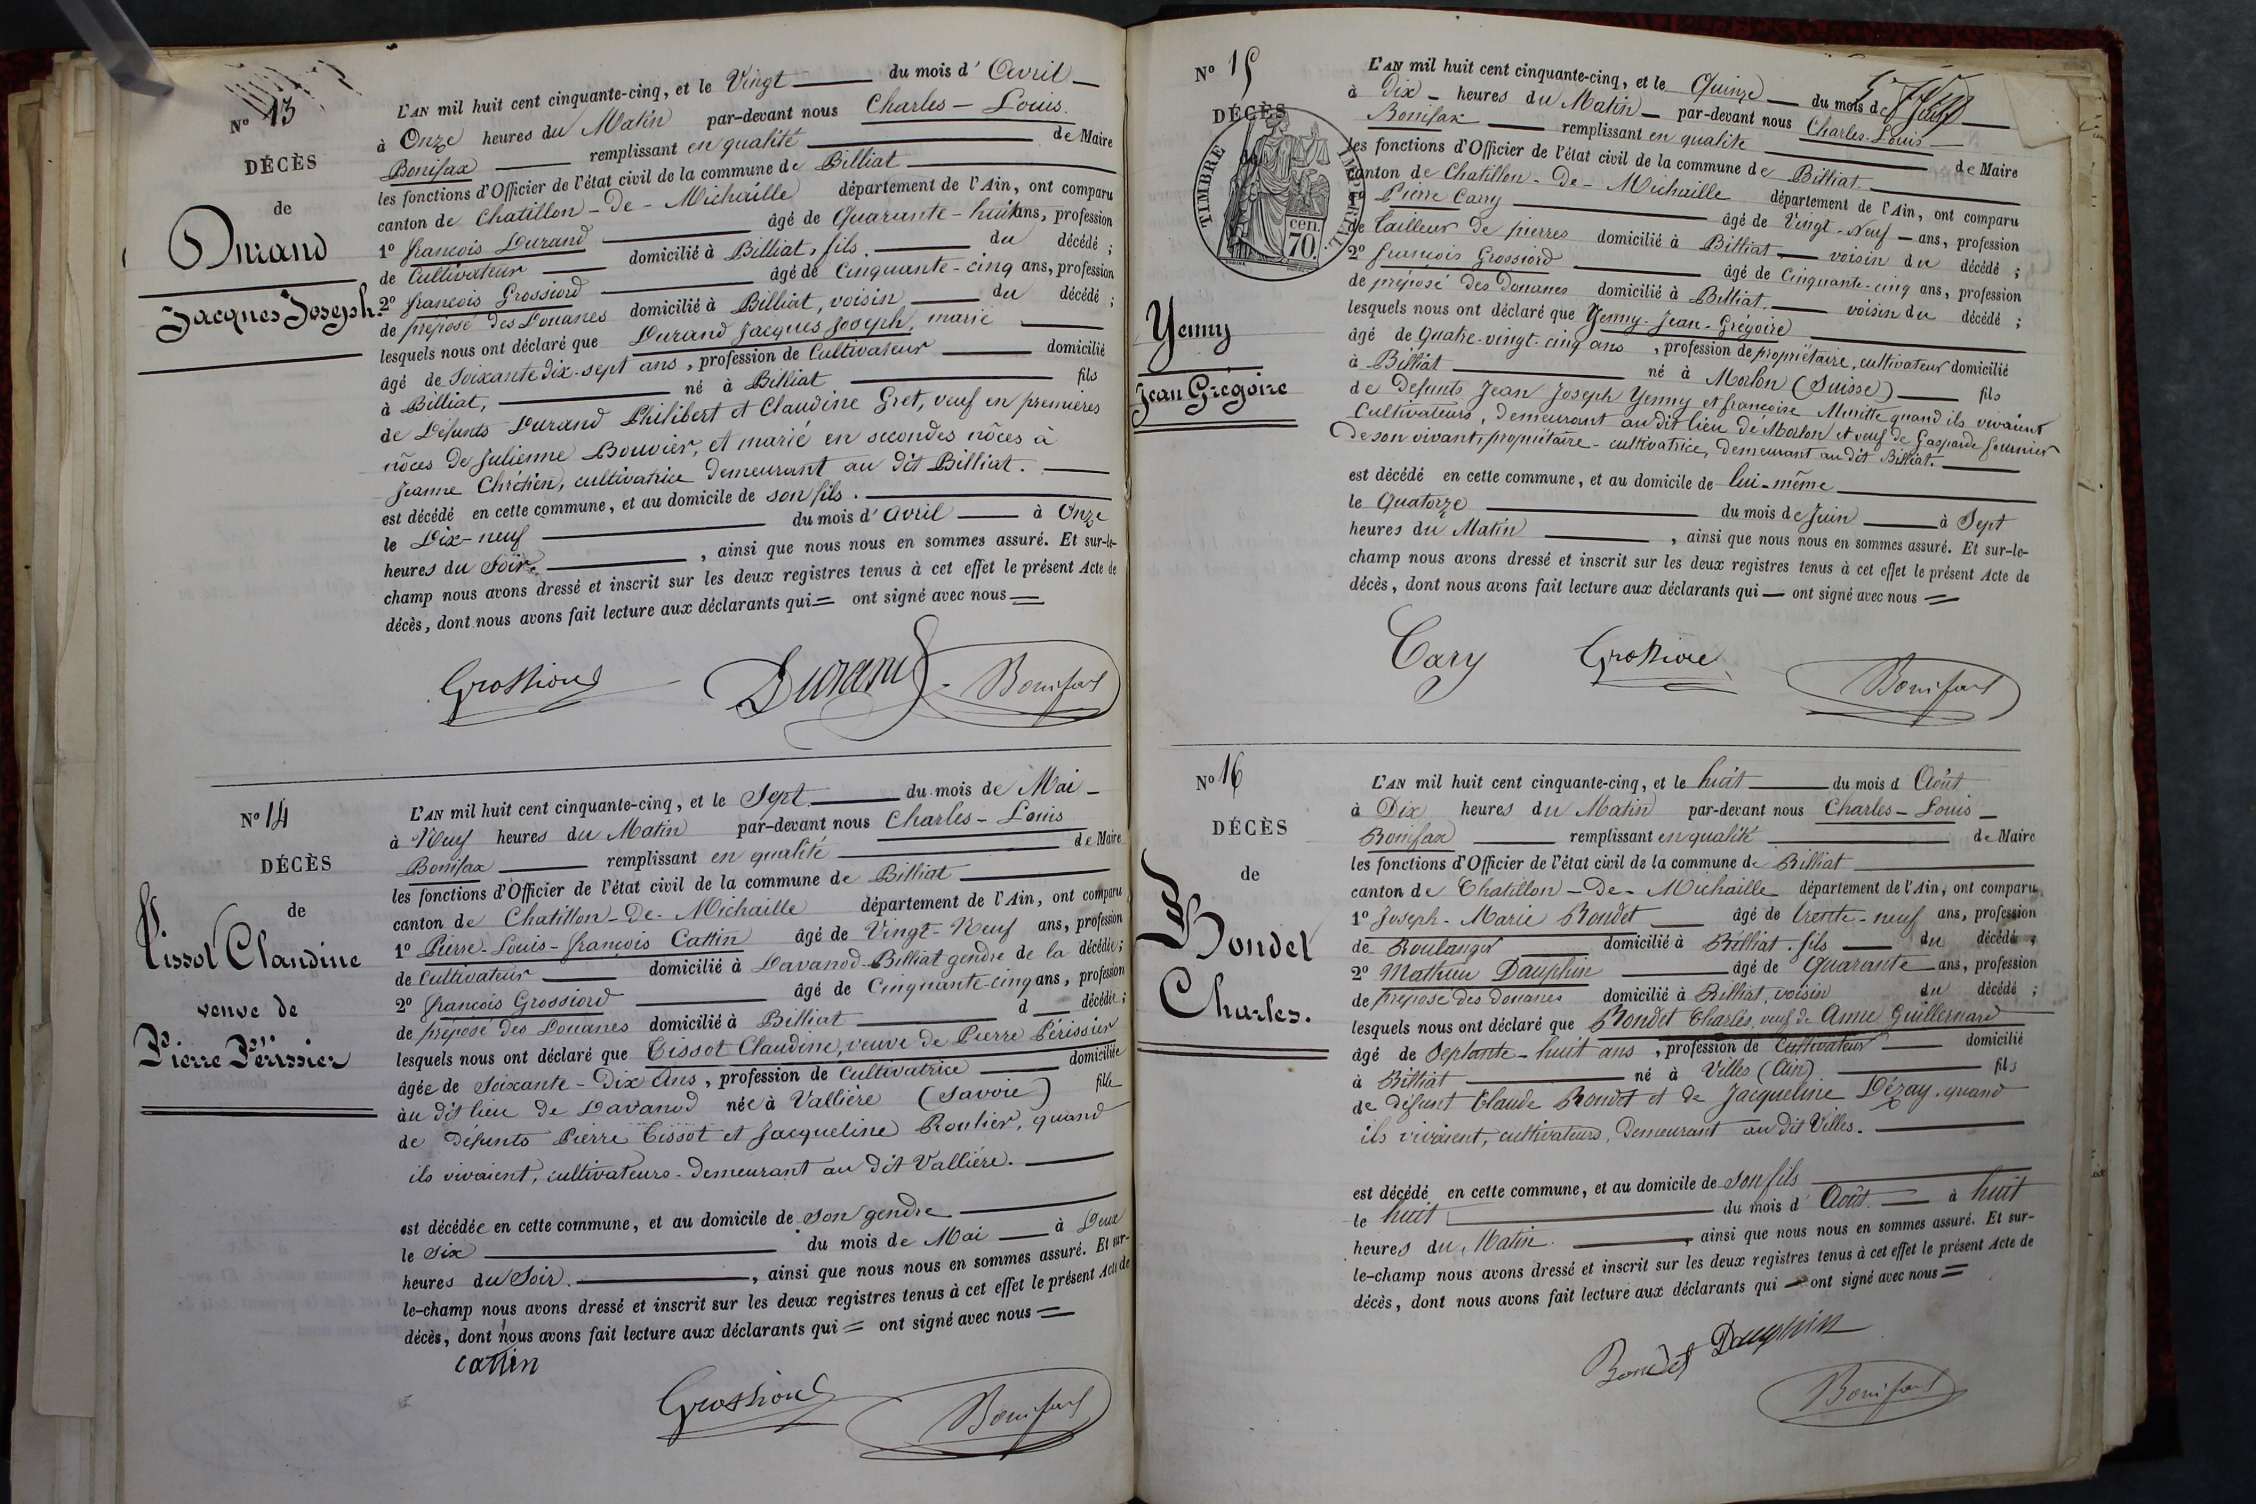 Nº 13
DÉCÈS
de
Durand
Jacques Joseph.
L'AN mil huit cent cinquante-cinq, et le Vingt du mois d' Avril
à Onze heures du Matin par-devant nous Charles - Louis
Bonifax remplissant en qualité de Maire
les fonctions d'Officier de l'état civil de la commune de Billiat
canton de Chatillon - de - Michaille département de l'Ain, ont comparu
1º françois Durand âgé de Quarante - huit ans, profession
de Cultivateur domicilié à Billiat, fils du décédé ;
2º françois Grossiord âgé de Cinquante - cinq ans, profession
de préposé des Douanes domicilié à Billiat, voisin du décédé ;
lesquels nous ont déclaré que Durand Jacques Joseph, marié
âgé de Soixante dix-sept ans, profession de Cultivateur domicilié
à Billiat, né à Billiat fils
de Défunts Durand Philibert et Claudine Gret, veuf en premières
nôces de Julienne Bouvier, et marié en secondes nôces à
Jeanne Chrétien, cultivatrice demeurant au dit Billiat.
est décédé en cette commune, et au domicile de son fils.
le Dix-neuf du mois d' avril à Onze
heures du Soir. , ainsi que nous nous en sommes assuré. Et sur-le-
champ nous avons dressé et inscrit sur les deux registres tenus à cet effet le présent Acte de
décès, dont nous avons fait lecture aux déclarants qui = ont signé avec nous =
Grossiord Durand Bonifax
Nº 14
DÉCÈS
de
Tissot Claudine
veuve de
Pierre Périssier
L'AN mil huit cent cinquante-cinq, et le Sept du mois de Mai
à Neuf heures du Matin par-devant nous Charles - Louis
Bonifax remplissant en qualité de Maire
les fonctions d'Officier de l'état civil de la commune de Billiat
canton de Chatillon - De - Michaille département de l'Ain, ont comparu
1º Pierre-Louis-françois Cattin âgé de Vingt-Neuf ans, profession
de Cultivateur domicilié à Davanod-Billiat gendre de la décédée ;
2º françois Grossiord âgé de Cinquante-cinq ans, profession
de préposé des Douanes domicilié à Billiat d décédée ;
lesquels nous ont déclaré que Tissot Claudine, veuve de Pierre Périssier
âgée de Soixante - Dix Ans, profession de Cultivatrice domiciliée
àu dit lieu de Davanod née à Vallière (Savoie) fille
de Défunts Pierre Tissot et Jacqueline Roulier, quand
ils vivaient, cultivateurs - demeurant au dit Vallière.
est décédée en cette commune, et au domicile de son gendre
le six du mois de Mai à Deux
heures du Soir. , ainsi que nous nous en sommes assuré. Et sur-
le-champ nous avons dressé et inscrit sur les deux registres tenus à cet effet le présent Acte de
décès, dont nous avons fait lecture aux déclarants qui = ont signé avec nous =
cattin
Grossiord Bonifax
Nº 15
DÉCÈS
TIMBRE IMPÉRIAL
70 cen.
Yenny
Jean Grégoire
L'AN mil huit cent cinquante-cinq, et le Quinze du mois de Juin
à Dix - heures du Matin par-devant nous Charles-Louis
Bonifax remplissant en qualité de Maire
les fonctions d'Officier de l'état civil de la commune de Billiat
canton de Chatillon - De - Michaille département de l'Ain, ont comparu
1º Pierre Cary âgé de Vingt-Neuf ans, profession
de tailleur de pierres domicilié à Billiat voisin du décédé ;
2º françois Grossiord âgé de Cinquante-cinq ans, profession
de préposé des Douanes domicilié à Billiat. voisin du décédé ;
lesquels nous ont déclaré que Yenny-Jean-Grégoire
âgé de Quatre-vingt-cinq ans, profession de propriétaire, cultivateur domicilié
à Billiat né à Morlon (Suisse) fils
de Défunts Jean Joseph Yenny et françoise quand ils vivaient
Cultivateurs, demeurant au dit lieu de Morlon et veuf de Gasparde fournier
de son vivant, propriétaire - cultivatrice, demeurant au dit Billiat.
est décédé en cette commune, et au domicile de lui-même
le Quatorze du mois de Juin à Sept
heures du Matin , ainsi que nous nous en sommes assuré. Et sur-le-
champ nous avons dressé et inscrit sur les deux registres tenus à cet effet le présent Acte de
décès, dont nous avons fait lecture aux déclarants qui ont signé avec nous =
Cary Grossiord Bonifax
Nº 16
DÉCÈS
de
Bondet
Charles.
L'AN mil huit cent cinquante-cinq, et le huit du mois d Août
à Dix heures du Matin par-devant nous Charles - Louis
Bonifax remplissant en qualité de Maire
les fonctions d'Officier de l'état civil de la commune de Billiat
canton de Chatillon - De - Michaille département de l'Ain, ont comparu
1º Joseph - Marie Bondet âgé de trente - neuf ans, profession
de Boulanger domicilié à Billiat. fils du décédé ;
2º Mathieu Dauphin âgé de Quarante ans, profession
de préposé des douanes domicilié à Billiat, voisin du décédé ;
lesquels nous ont déclaré que Bondet Charles, veuf de Anne Guillermard
âgé de Septante - huit ans, profession de Cultivateur domicilié
à Billiat né à Villes (Ain) fils
de défunt Claude Bondet et de Jacqueline Dézay, quand
ils vivaient, cultivateurs, Demeurant au dit Villes.
est décédé en cette commune, et au domicile de son fils
le huit du mois d' Août. à huit
heures du Matin. , ainsi que nous nous en sommes assuré. Et sur-
le-champ nous avons dressé et inscrit sur les deux registres tenus à cet effet le présent Acte de
décès, dont nous avons fait lecture aux déclarants qui ont signé avec nous =
Bondet Dauphin
Bonifax